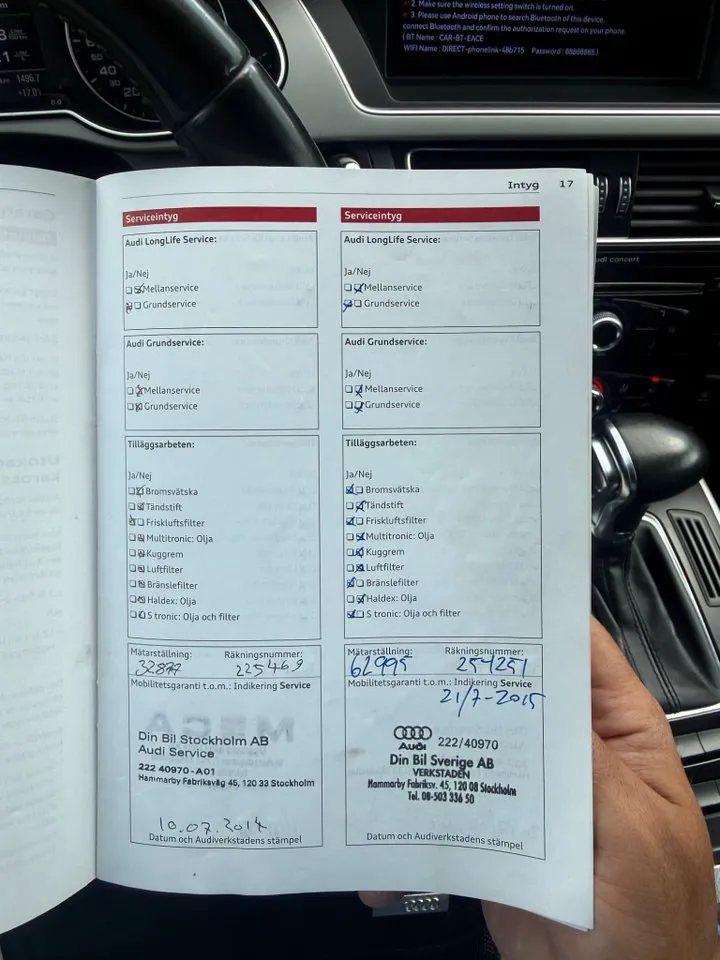 2. Make sure the wireless setting switch is turned on.
3. Please use Android phone to search Bluetooth of this device,
connect Bluetooth and confirm the authorization request on your phone.
( BT Name : CAR-BT-EACE
WIFI Name : DIRECT-phonelink-48b715 Password : 88888888 )
40
20
1496.7
+17.0
0.0
audi concert
Intyg 17
Serviceintyg
Audi LongLife Service:
Ja/Nej
Mellanservice
Grundservice
Audi Grundservice:
Ja/Nej
Mellanservice
Grundservice
Tilläggsarbeten:
Ja/Nej
Bromsvätska
Tändstift
Friskluftsfilter
Multitronic: Olja
Kuggrem
Luftfilter
Bränslefilter
Haldex: Olja
S tronic: Olja och filter
Mätarställning: Räkningsnummer:
32877 225469
Mobilitetsgaranti t.o.m.: Indikering Service
Din Bil Stockholm AB
Audi Service
222 40970-A01
Hammarby Fabriksväg 45, 120 33 Stockholm
10.07.2014
Datum och Audiverkstadens stämpel
Serviceintyg
Audi LongLife Service:
Ja/Nej
Mellanservice
Grundservice
Audi Grundservice:
Ja/Nej
Mellanservice
Grundservice
Tilläggsarbeten:
Ja/Nej
Bromsvätska
Tändstift
Friskluftsfilter
Multitronic: Olja
Kuggrem
Luftfilter
Bränslefilter
Haldex: Olja
S tronic: Olja och filter
Mätarställning: Räkningsnummer:
62995 254251
Mobilitetsgaranti t.o.m.: Indikering Service
21/7-2015
Audi 222/40970
Din Bil Sverige AB
VERKSTADEN
Hammarby Fabriksv. 45, 120 08 Stockholm
Tel. 08-503 336 50
Datum och Audiverkstadens stämpel